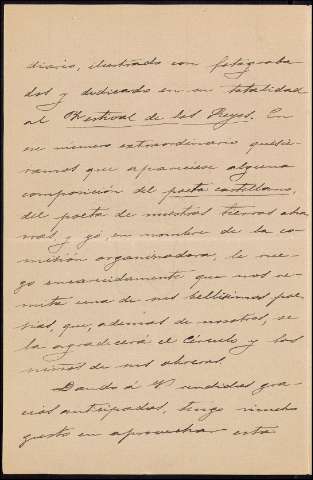 diario, ilustrado con fotograba-
dos y dedicado en su totalidad
al Festival de los Reyes. En
ese número extraordinario quisié-
ramos que apareciese alguna
composición del poeta castellano,
del poeta de nuestras tierras cha-
rras y yó, en nombre de la co-
misión organizadora, le rue-
go encarecidamente que nos re-
mita una de sus bellísimas poe-
sías, que, además de nosotros, se
la agradecerá el Círculo y los
niños de sus obreros.
Dando á V rendidas gra-
cias anticipadas, tengo mucho
gusto en aprovechar esta